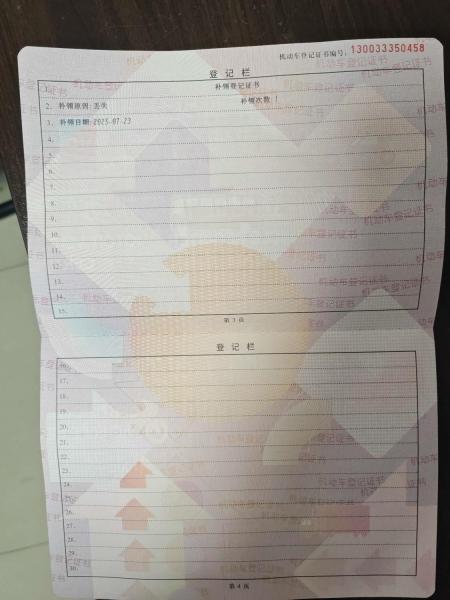 机动车登记证书编号：130033350458
登记栏
1. 补领登记证书
2. 补领原因：丢失 补领次数：1
3. 补领日期：2025-07-23
4.
5.
6.
7.
8.
9.
10.
11.
12.
13.
14.
15.
第3页
登记栏
16.
17.
18.
19.
20.
21.
22.
23.
24.
25.
26.
27.
28.
29.
30.
第4页